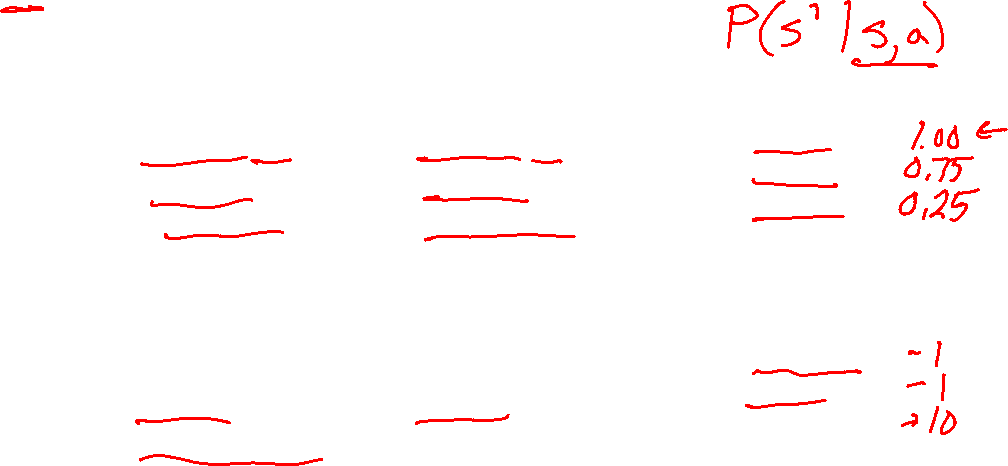 P(s'|s,a)
1.00 ←
0.75
0.25
-1
-1
+10